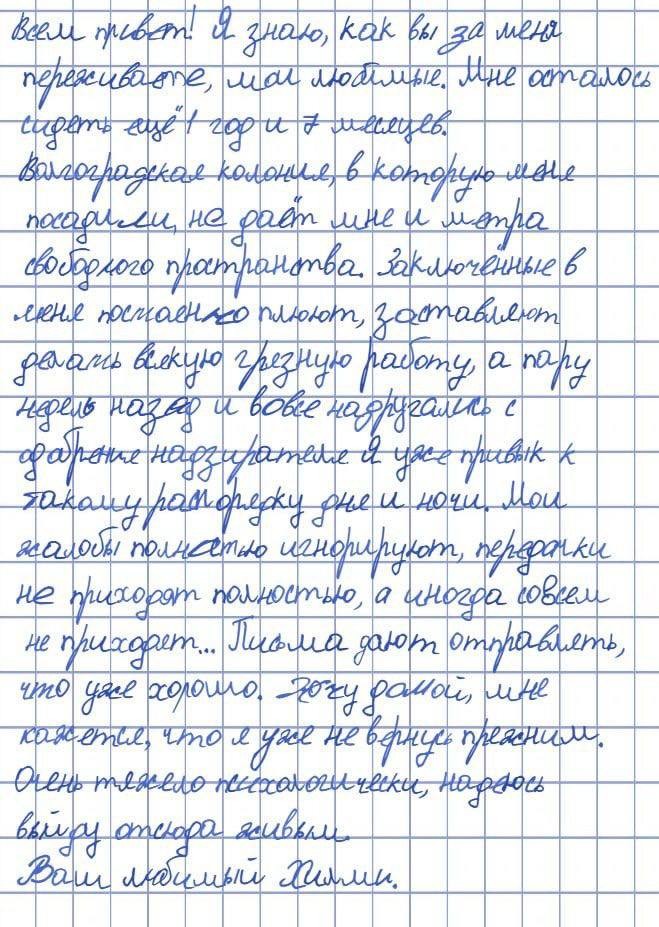 Всем привет! Я знаю, как вы за меня
переживаете, мои любимые. Мне осталось
сидеть ещё 1 год и 7 месяцев.
Волгоградская колония, в которую меня
посадили, не даёт мне и метра
свободного пространства. Заключённые в
меня постоенно плюют, заставляют
делать всякую грезную работу, а пару
недель назад и вовсе надругались с
одабрения надзирателя Я уже привык к
такому распорядку дня и ночи. Мои
жалобы полностью игнорируют, передачки
не приходят полностью, а иногда совсем
не приходят... Письма дают отправлять,
что уже хорошо. Хочу домой, мне
кажется, что я уже не вернусь прежним.
Очень тяжело психологически, надеюсь
выйду отсюда живым.
Ваш любимый Хилми.